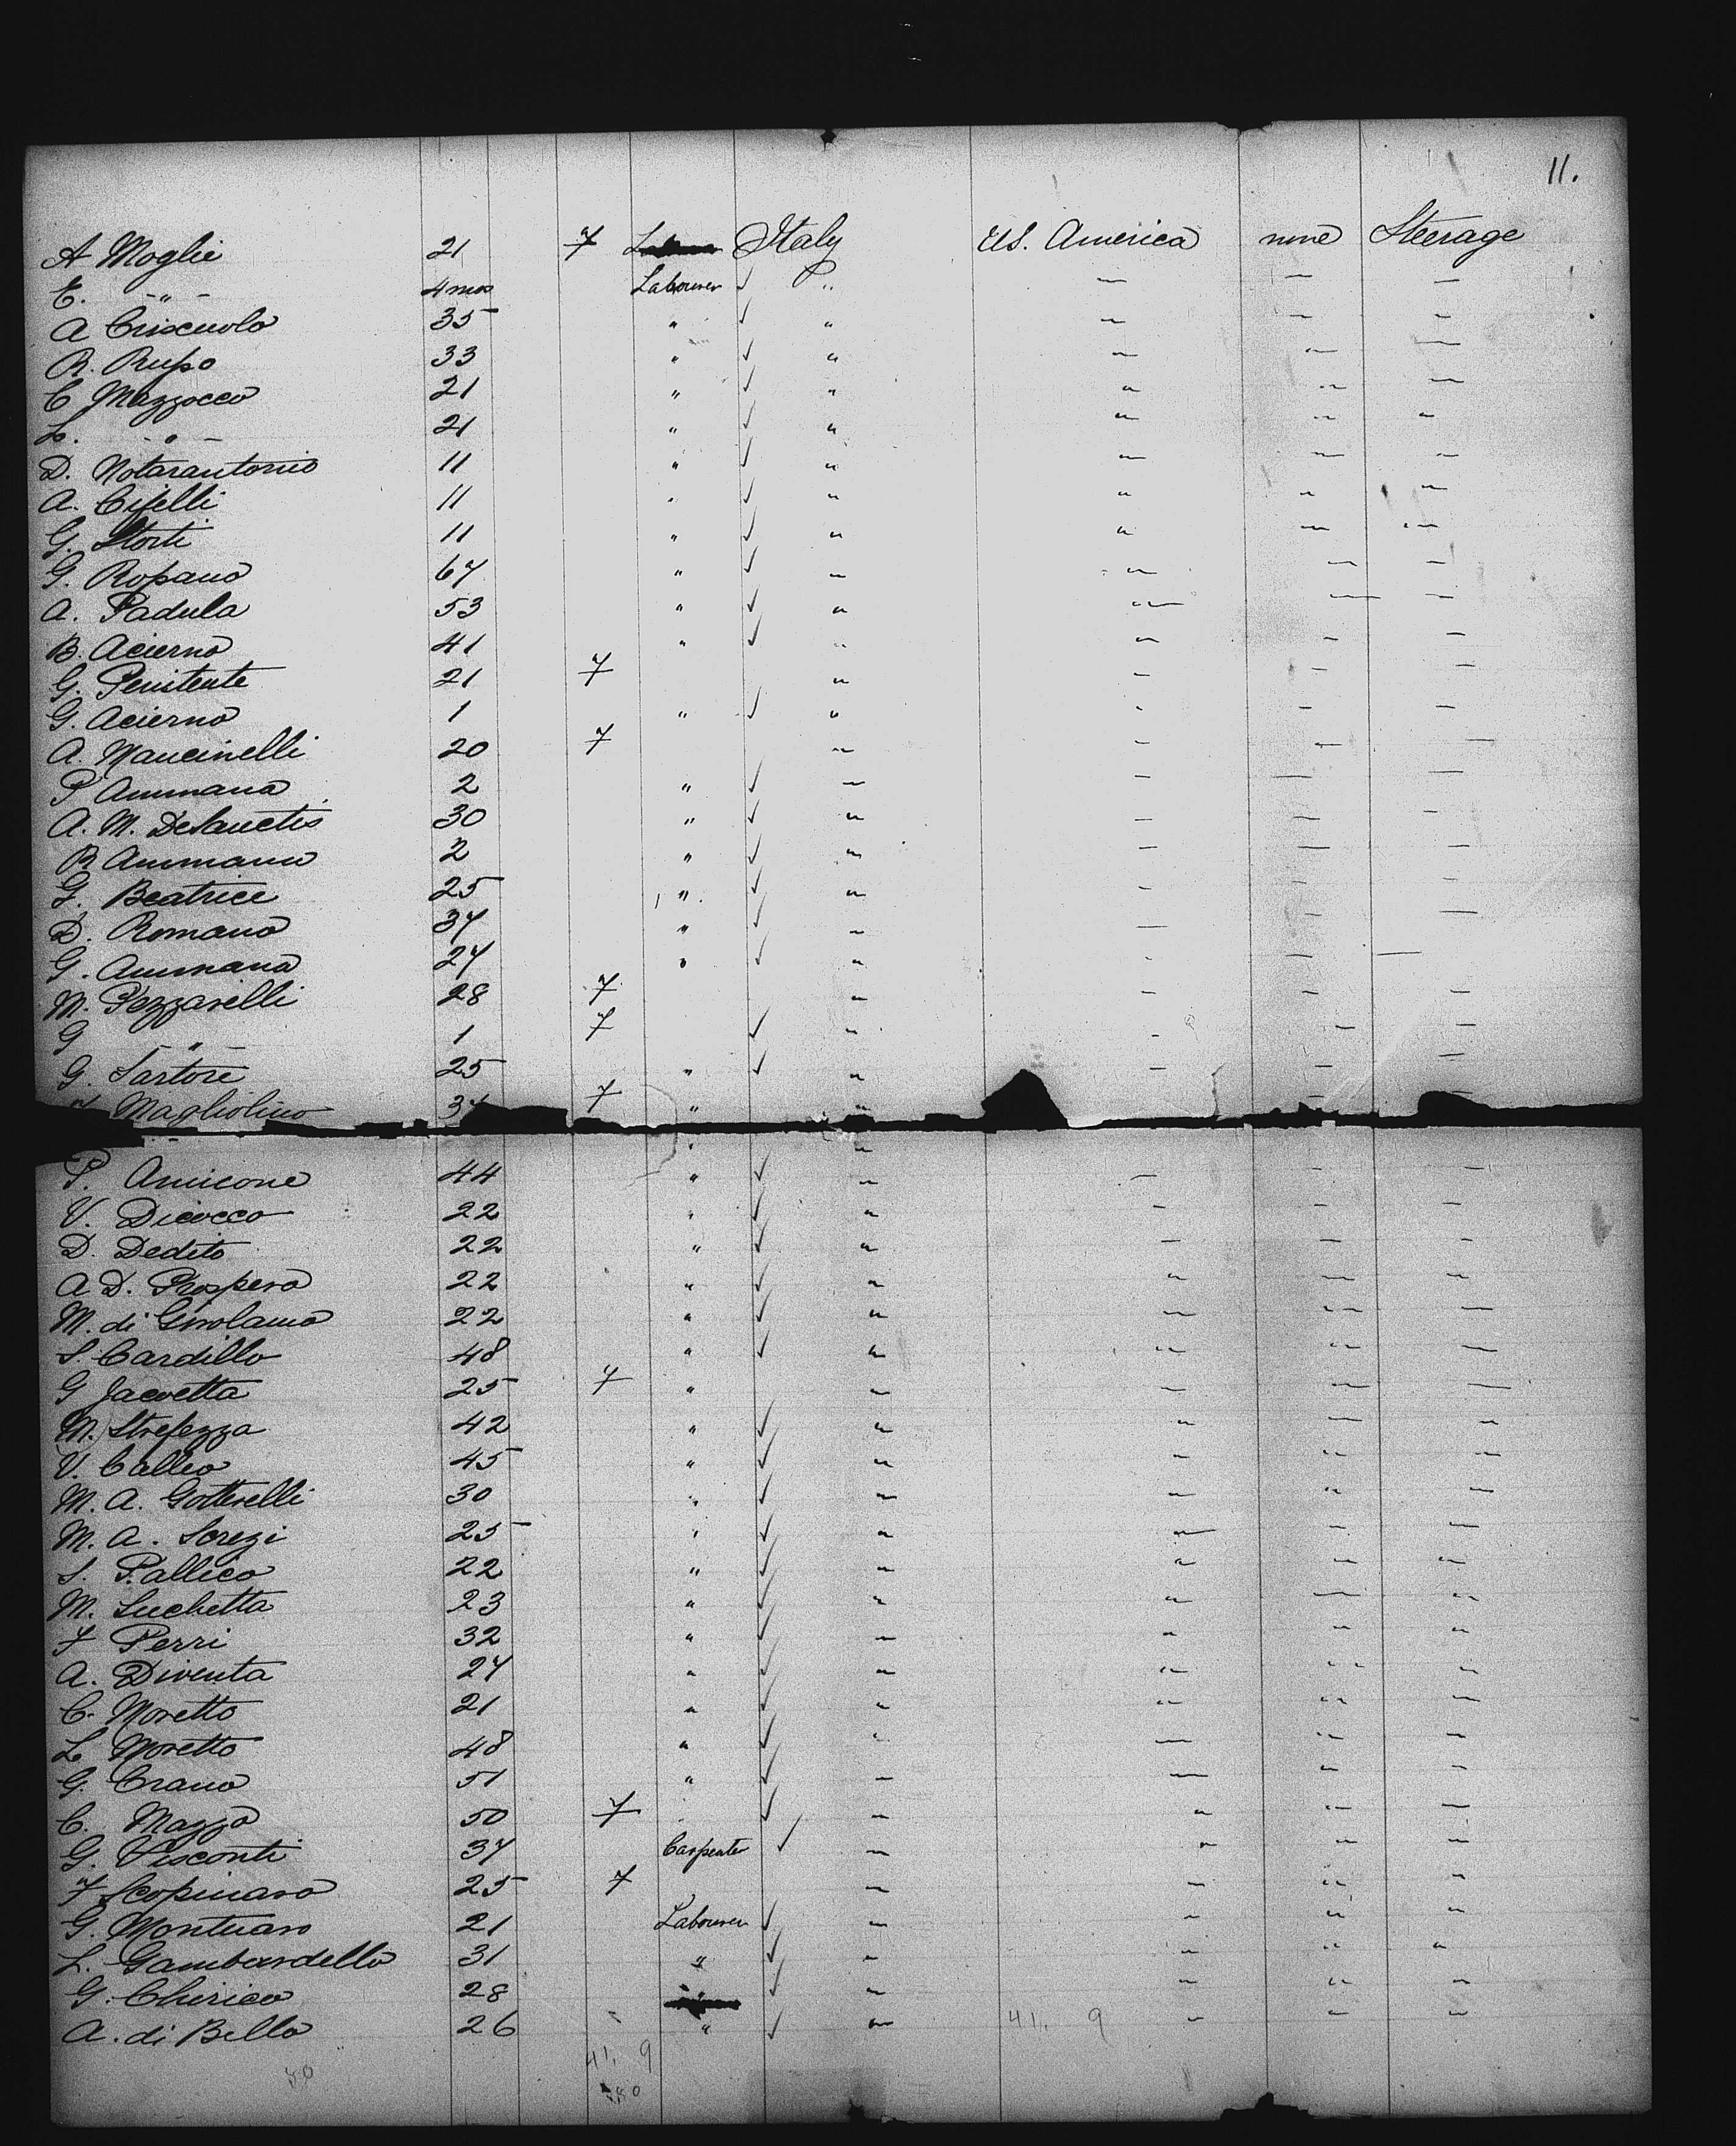 11.
A Moglie 21 7 Italy U.S. America none Steerage
E. - " - 4 mos Labourer ✓ " — — —
A Criscuolo 35 " ✓ " — — —
R. Rupo 33 " ✓ " — — —
C Mazzocco 21 " ✓ " " " —
L. - " - 21 " ✓ " " " "
D. Notarantonio 11 " ✓ " — — —
A. Cifelli 11 " ✓ " " " "
G. Storti 11 " ✓ " " — "
G. Ropano 67 " ✓ " " — —
A. Padula 53 " ✓ " " — —
B. Acierno 41 " ✓ " " — —
G. Penitente 21 7 " — — —
G. Acierno 1 " ✓ " - — —
A. Mancinelli 20 7 " — — —
P Ammana 2 " ✓ " — — —
A. M. DeSanctis 30 " ✓ " — — —
R Ammana 2 " ✓ " — — —
G. Beatrice 25 " ✓ " - - —
D. Romano 37 " ✓ " — — —
G. Ammana 27 " ✓ " - — —
M. Pezzarelli 28 7 " — — —
G - " - 1 7 ✓ " — — —
G. Sartore 25 " ✓ " — — —
Magliolino 7 " " — —
" "
P. Amicone 44 " ✓ " — — —
V. Dicocco 22 " ✓ " — — —
D. Dedito 22 " ✓ " — — —
A D. Prospero 22 " ✓ " " — "
M. di Girolamo 22 " ✓ " — " —
S. Cardillo 48 " ✓ " " " —
G Jacovetta 25 7 " " — — —
M. Strepezza 42 " ✓ " " — "
V. Calleo 45 " ✓ " — " "
M. A. Gotterelli 30 " ✓ " — " —
M. A. Screzi 25 " ✓ " " — —
S. Pallico 22 " ✓ " " — "
M. Luchetta 23 " ✓ " " — "
F Perri 32 " ✓ " " " "
A. Diventa 27 " ✓ " " " "
C. Moretto 21 " ✓ " " " —
L Moretto 48 " ✓ " — " —
G. Crano 51 " ✓ " — " —
C. Mazzo 50 7 " ✓ " " " —
G. Visconti 37 Carpenter ✓ " " " "
F Scopinaro 25 7 " — " "
G. Montuaro 21 Labourer ✓ " " " "
L. Gambardella 31 " ✓ " " " "
G. Chirico 28 ✓ " " " "
A. di Bello 26 " ✓ " 41. 9 " " "
50 41. 9